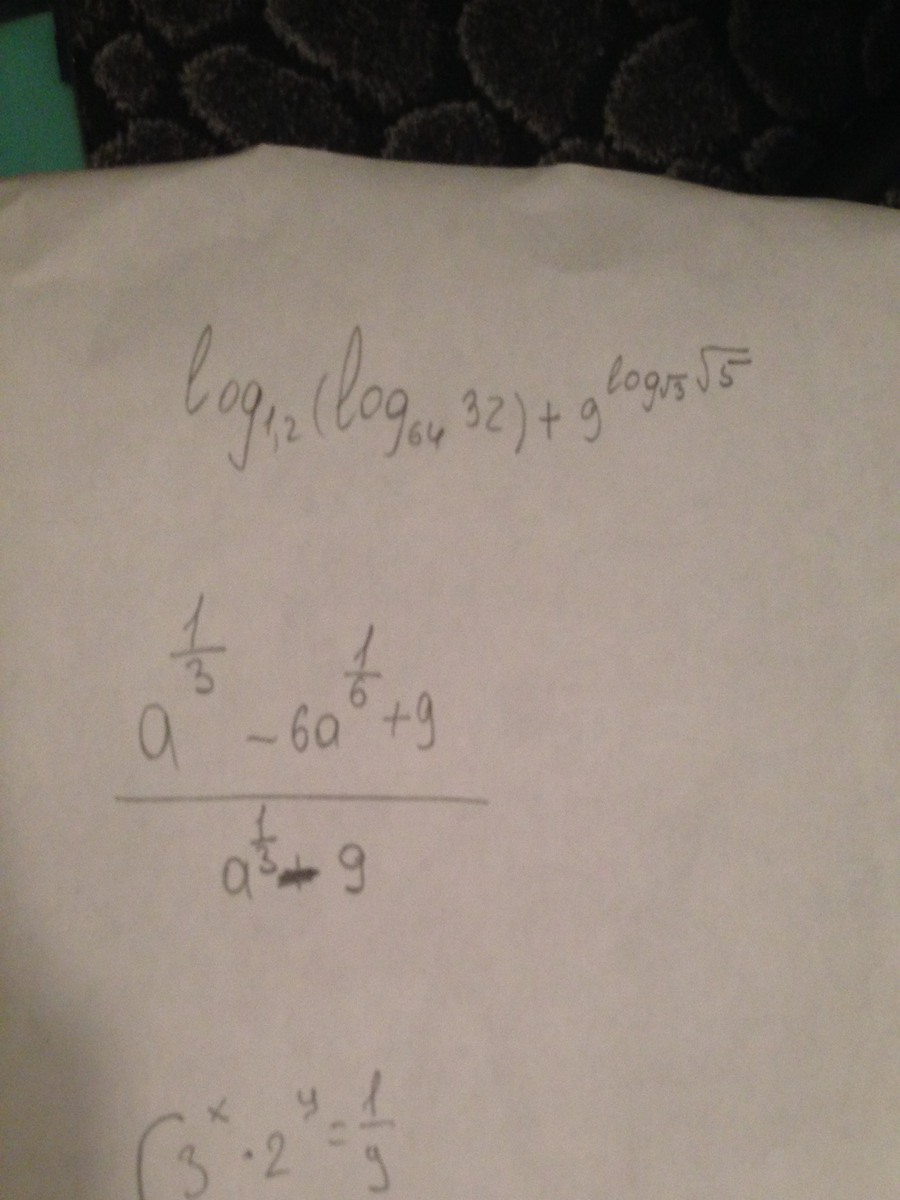 log₁,₂(log₆₄ 32) + 9^(log_√3 √5)
(a^(1/3) - 6a^(1/6) + 9) / (a^(1/3) - 9)
{ 3^x · 2^y = 1/9